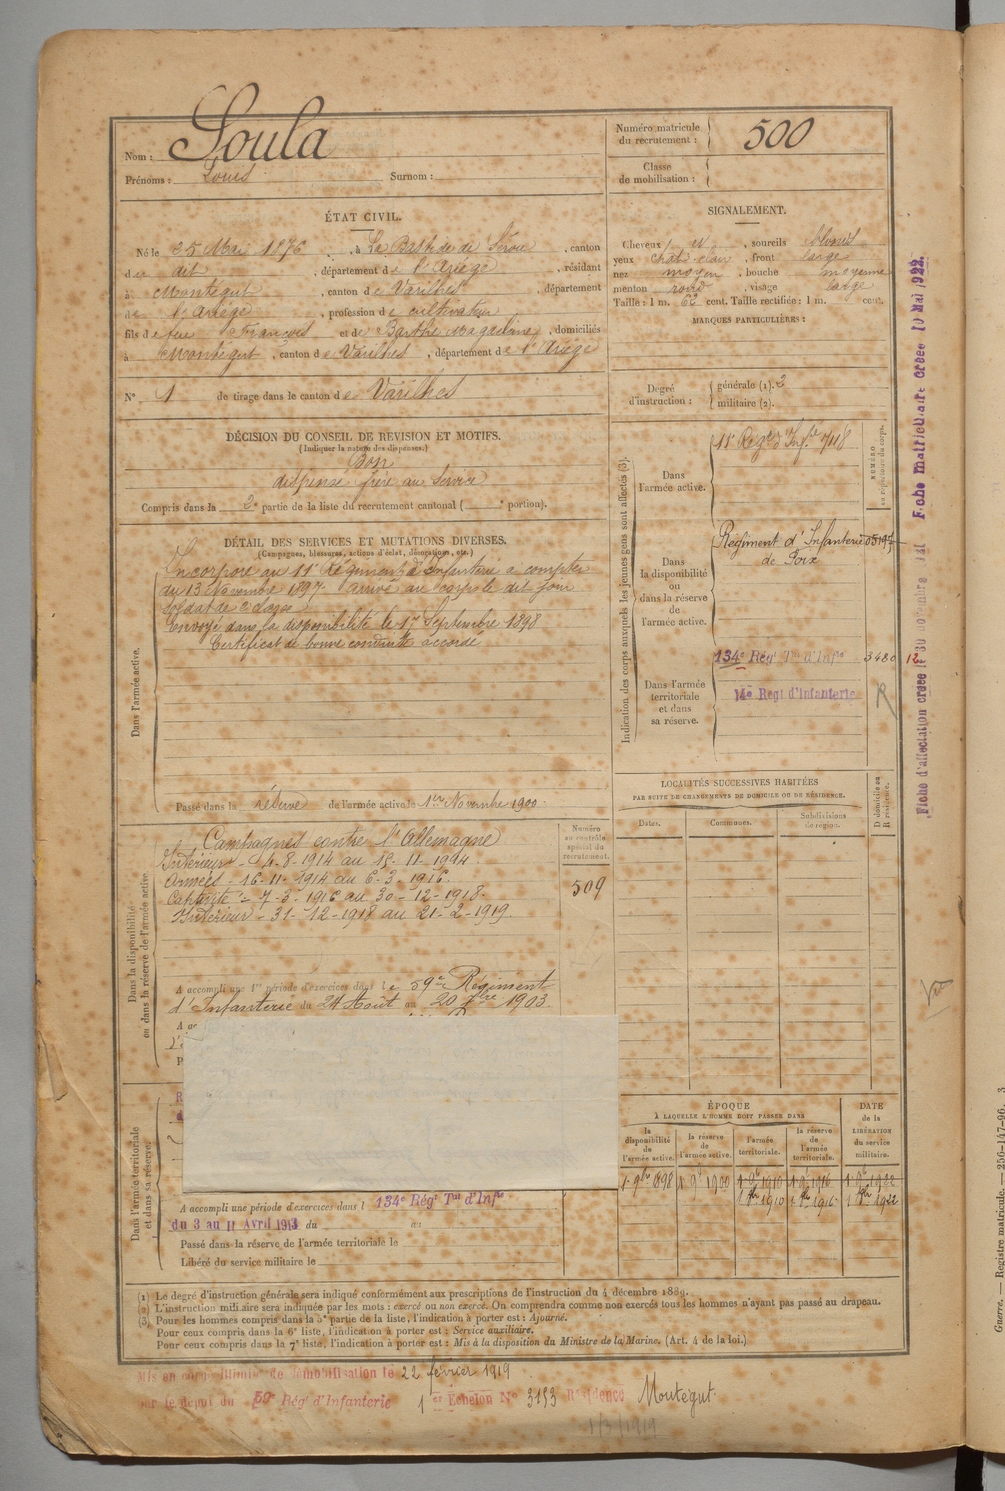 Nom : Soula
Prénoms : Louis Surnom :
Numéro matricule du recrutement : 500
Classe de mobilisation :
ÉTAT CIVIL.
Né le 25 Mai 1876, à La Bastide de Sérou, canton
du dit, département de l'Ariège, résidant
à Montégut, canton de Varilhes, département
de l'Ariège, profession de cultivateur
fils de feu François et de Barthe Magdeleine, domiciliés
à Montégut, canton de Varilhes, département de l'Ariège
N° 1 de tirage dans le canton de Varilhes
SIGNALEMENT.
Cheveux , sourcils blonds
yeux chat. clair, front large
nez moyen, bouche moyenne
menton rond, visage large
Taille : 1 m. 62 cent. Taille rectifiée : 1 m. cent.
MARQUES PARTICULIÈRES :
Degré d'instruction : générale (1). 3
militaire (2).
DÉCISION DU CONSEIL DE REVISION ET MOTIFS.
(Indiquer la nature des dispenses.)
Bon
dispensé frère au service
Compris dans la 2e partie de la liste du recrutement cantonal ( e portion).
DÉTAIL DES SERVICES ET MUTATIONS DIVERSES.
(Campagnes, blessures, actions d'éclat, décorations, etc.)
Dans l'armée active.
Incorporé au 11e Régiment d'Infanterie à compter
du 13 Novembre 1897. arrivé au corps le dit jour
soldat de 2e classe
Envoyé dans la disponibilité le 17 Septembre 1898
Certificat de bonne conduite accordé
Passé dans la réserve de l'armée active le 1er Novembre 1900.
Indication des corps auxquels les jeunes gens sont affectés (3).
NUMÉRO au répertoire du corps.
Dans l'armée active.
11e Régt d'Infrie 7118
Dans la disponibilité ou dans la réserve de l'armée active.
Régiment d'Infanterie
de Foix
Dans l'armée territoriale et dans sa réserve.
134e Régt Tial d'Infie 3480 12
14e Regt d'Infanterie R
LOCALITÉS SUCCESSIVES HABITÉES
PAR SUITE DE CHANGEMENTS DE DOMICILE OU DE RÉSIDENCE.
Dates. Communes. Subdivisions de région. D domicile ou R résidence.
Dans la disponibilité ou dans la réserve de l'armée active.
Campagnes contre l'Allemagne
Intérieur - 4-8-1914 au 15-11-1914.
Armées - 16-11-1914 au 6-3-1916.
Captivité - 7-3-1916 au 30-12-1918.
Intérieur - 31-12-1918 au 21-2-1919.
Numéro au contrôle spécial du recrutement.
509
A accompli une 1re période d'exercices dans le 59e Régiment
d'Infanterie du 24 Août au 20 7bre 1903.
Dans l'armée territoriale et dans sa réserve.
A accompli une période d'exercices dans l 134e Régt Tial d'Infie
du 3 au 11 Avril 1913 du au
Passé dans la réserve de l'armée territoriale le
Libéré du service militaire le
ÉPOQUE
À LAQUELLE L'HOMME DOIT PASSER DANS
DATE de la LIBÉRATION du service militaire.
la disponibilité de l'armée active. la réserve de l'armée active. l'armée territoriale. la réserve de l'armée territoriale.
1 9bre 1898 1 9bre 1900 1 9bre 1910 1 9bre 1916 1 9bre 1922
1 8bre 1910 1 8bre 1916 1 8bre 1922
(1) Le degré d'instruction générale sera indiqué conformément aux prescriptions de l'instruction du 4 décembre 1889.
(2) L'instruction militaire sera indiquée par les mots : exercé ou non exercé. On comprendra comme non exercés tous les hommes n'ayant pas passé au drapeau.
(3) Pour les hommes compris dans la 5e partie de la liste, l'indication à porter est : Ajourné.
Pour ceux compris dans la 6e liste, l'indication à porter est : Service auxiliaire.
Pour ceux compris dans la 7e liste, l'indication à porter est : Mis à la disposition du Ministre de la Marine. (Art. 4 de la loi.)
Mis en congé illimité de démobilisation le 22 février 1919
par le dépôt du 59e Rég' d'Infanterie 1er Echelon N° 3153 Résidence Montégut
1/3/1919
Fiche matriculaire créée 10 Mai 1922.
Fiche d'affectation créée le 30 novembre
Guerre. — Registre matricule. — 256-147-96. 3